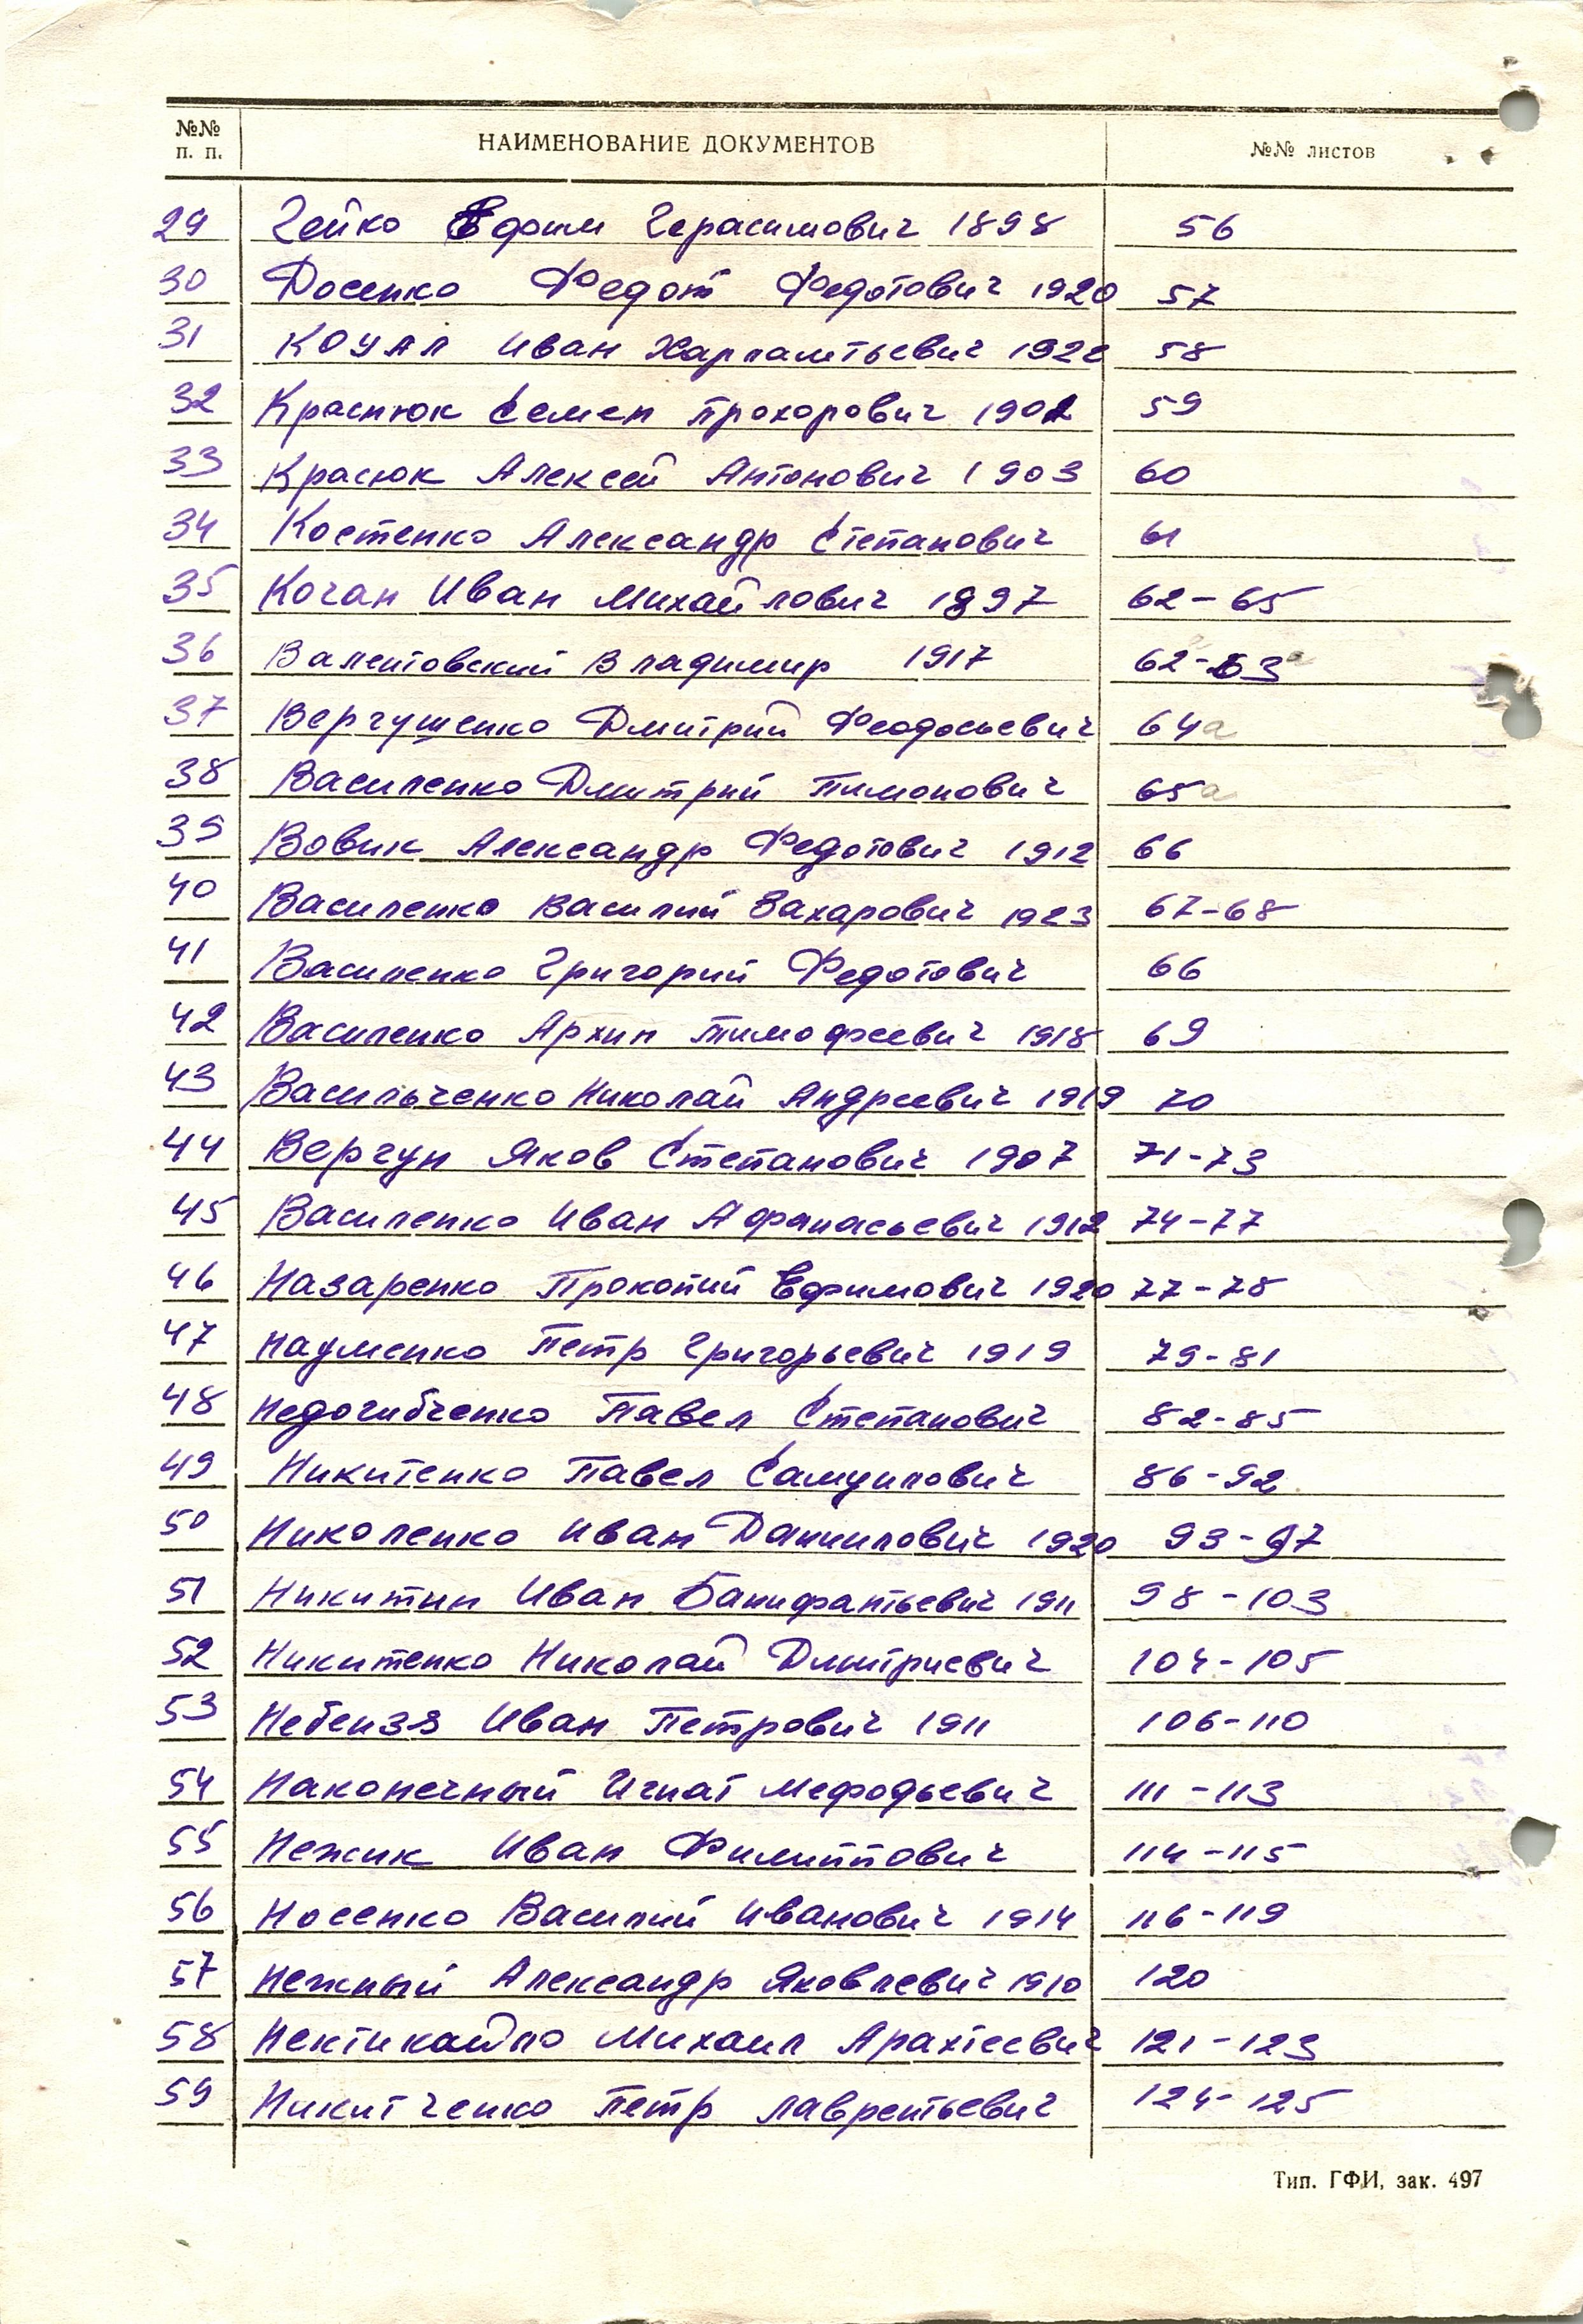 №№ п. п. НАИМЕНОВАНИЕ ДОКУМЕНТОВ №№ листов
29 Гейко Ефим Герасимович 1898 56
30 Доценко Федот Федотович 1920 57
31 Коцал Иван Харлампьевич 192 58
32 Краснюк Семен Прохорович 1902 59
33 Красюк Алексей Антонович 1903 60
34 Костенко Александр Степанович 61
35 Кочан Иван Михайлович 1897 62-65
36 Валентовский Владимир 1917 62-63а
37 Вергушенко Дмитрий Феодосьевич 64а
38 Василенко Дмитрий Пимонович 65а
39 Вовик Александр Федотович 1912 66
40 Василенко Василий Захарович 1923 67-68
41 Василенко Григорий Федотович 66
42 Василенко Архип Тимофеевич 1918 69
43 Васильченко Николай Андреевич 1919 70
44 Вергун Яков Степанович 1907 71-73
45 Василенко Иван Афанасьевич 1912 74-77
46 Назаренко Прокопий Ефимович 1920 77-78
47 Науменко Петр Григорьевич 1919 79-81
48 Недогибченко Павел Степанович 82-85
49 Никитенко Павел Самуилович 86-92
50 Николенко Иван Данилович 1920 93-97
51 Никитин Иван Банифантьевич 1911 98-103
52 Никитенко Николай Дмитриевич 104-105
53 Небензя Иван Петрович 1911 106-110
54 Наконечный Игнат Мефодьевич 111-113
55 Нежик Иван Филиппович 114-115
56 Носенко Василий Иванович 1914 116-119
57 Нежный Александр Яковлевич 1910 120
58 Михаил 121-123
59 Никитченко Петр Лаврентьевич 124-125
Тип. ГФИ, зак. 497